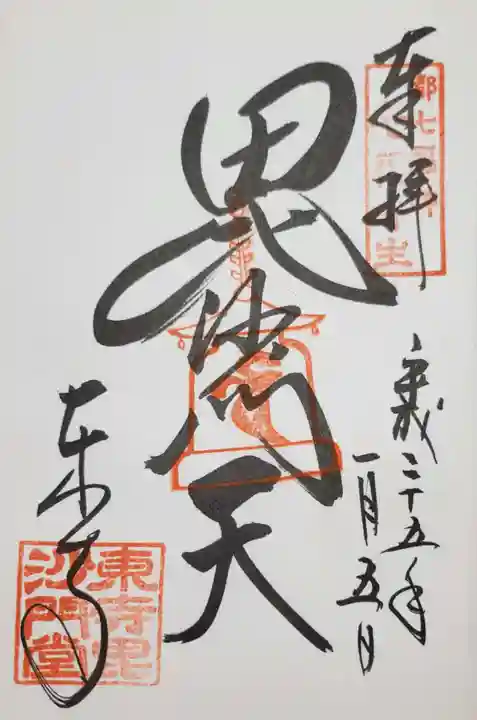 奉拝
都七
平成二十五年
一月五日
毘沙門天
東寺
東寺毘
沙門堂